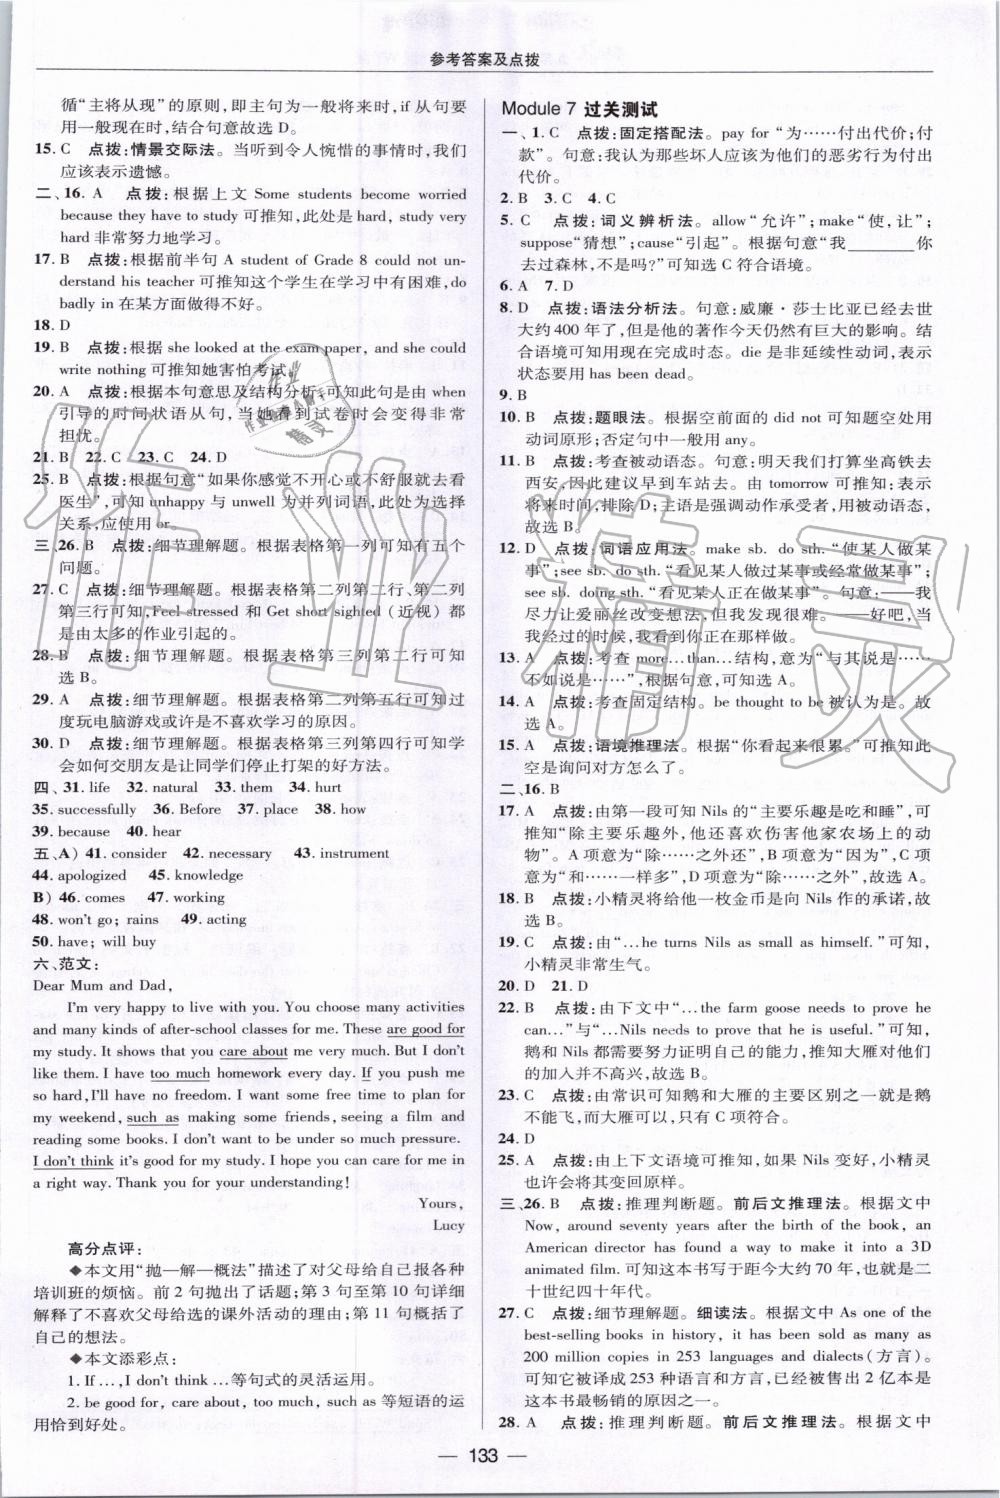 参考答案及点拨
循“主将从现”的原则，即主句为一般将来时，if 从句要
用一般现在时，结合句意故选 D。
15. C　点拨：情景交际法。当听到令人惋惜的事情时，我们
应该表示遗憾。
二、16. A　点拨：根据上文 Some students become worried
because they have to study 可推知，此处是 hard，study very
hard 非常努力地学习。
17. B　点拨：根据前半句 A student of Grade 8 could not un-
derstand his teacher 可推知这个学生在学习中有困难，do
badly in 在某方面做得不好。
18. D
19. B　点拨：根据 she looked at the exam paper, and she could
write nothing 可推知她害怕考试。
20. A　点拨：根据本句意思及结构分析，可知此句是由 when
引导的时间状语从句，当她看到试卷时会变得非常
担忧。
21. B　22. C　23. C　24. D
25. B　点拨：根据句意“如果你感觉不开心或不舒服就去看
医生”，可知 unhappy 与 unwell 为并列词语，此处为选择
关系，应使用 or。
三、26. B　点拨：细节理解题。根据表格第一列可知有五个
问题。
27. C　点拨：细节理解题。根据表格第二列第二行、第二列
第三行可知，Feel stressed 和 Get short sighted（近视）都
是由太多的作业引起的。
28. B　点拨：细节理解题。根据表格第三列第二行可知
选 B。
29. A　点拨：细节理解题。根据表格第二列第五行可知过
度玩电脑游戏或许是不喜欢学习的原因。
30. D　点拨：细节理解题。根据表格第三列第四行可知学
会如何交朋友是让同学们停止打架的好方法。
四、31. life　32. natural　33. them　34. hurt
35. successfully　36. Before　37. place　38. how
39. because　40. hear
五、A）41. consider　42. necessary　43. instrument
44. apologized　45. knowledge
B）46. comes　47. working
48. won't go；rains　49. acting
50. have；will buy
六、范文：
Dear Mum and Dad,
I'm very happy to live with you. You choose many activities
and many kinds of after-school classes for me. These are good for
my study. It shows that you care about me very much. But I don't
like them. I have too much homework every day. If you push me
so hard, I'll have no freedom. I want some free time to plan for
my weekend, such as making some friends, seeing a film and
reading some books. I don't want to be under so much pressure.
I don't think it's good for my study. I hope you can care for me in
a right way. Thank you for your understanding!
Yours,
Lucy
高分点评：
◆本文用“抛—解—概法”描述了对父母给自己报各种
培训班的烦恼。前 2 句抛出了话题；第 3 句至第 10 句详细
解释了不喜欢父母给选的课外活动的理由；第 11 句概括了
自己的想法。
◆本文添彩点：
1. If …, I don't think …等句式的灵活运用。
2. be good for, care about, too much, such as 等短语的运
用恰到好处。
Module 7 过关测试
一、1. C　点拨：固定搭配法。pay for “为……付出代价；付
款”。句意：我认为那些坏人应该为他的恶劣行为付出
代价。
2. B　3. C　4. C
5. C　点拨：词义辨析法。allow “允许”；make “使，让”；
suppose“猜想”；cause“引起”。根据句意“我________你
去过森林，不是吗？”可知选 C 符合语境。
6. A　7. D
8. D　点拨：语法分析法。句意：威廉·莎士比亚已经去世
大约 400 年了，但是他的著作今天仍然有巨大的影响。结
合语境可知用现在完成时态。die 是非延续性动词，表示
状态要用 has been dead。
9. B
10. B　点拨：题眼法。根据空前面的 did not 可知题空处用
动词原形；否定句中一般用 any。
11. B　点拨：考查被动语态。句意：明天我们打算坐高铁去
西安，因此建议早到车站去。由 tomorrow 可推知：表示
将来时间，排除 D；主语是强调动作承受者，用被动语态，
故选 B。
12. D　点拨：词语应用法。make sb. do sth. “使某人做某
事”；see sb. do sth. “看见某人做过某事或经常做某事”；
see sb. doing sth. “看见某人正在做某事”。句意：——我
尽力让爱丽丝改变想法，但我发现很难。——好吧，当
我经过的时候，我看到你正在那样做。
13. A　点拨：考查 more…than…结构，意为“与其说是……
不如说是……”，根据句意，可知选 A。
14. A　点拨：考查固定结构。be thought to be 被认为，故
选 A。
15. A　点拨：语境推理法。根据“你看起来很累。”可推知此
空是询问对方怎么了。
二、16. B
17. A　点拨：由第一段可知 Nils 的“主要乐趣是吃和睡”，可
推知“除主要乐趣外，他还喜欢伤害他家农场上的动
物”。A 项意为“除……之外还”，B 项意为“因为”，C 项
意为“和……一样多”，D 项意为“除……之外”，故选 A。
18. B　点拨：小精灵将给他一枚金币是向 Nils 作的承诺，故
选 B。
19. C　点拨：由“…he turns Nils as small as himself. ”可知，
小精灵非常生气。
20. D　21. D
22. B　点拨：由下文中“…the farm goose needs to prove he
can…”与“…Nils needs to prove that he is useful. ”可知，
鹅和 Nils 都需要努力证明自己的能力，推知大雁对他们
的加入并不高兴，故选 B。
23. C　点拨：由常识可知鹅和大雁的主要区别之一就是鹅
不能飞，而大雁可以，只有 C 项符合。
24. D
25. A　点拨：由上下文语境可推知，如果 Nils 变好，小精灵
也许会将其变回原样。
三、26. B　点拨：推理判断题。前后文推理法。根据文中
Now, around seventy years after the birth of the book, an
American director has found a way to make it into a 3D
animated film. 可知这本书写于距今大约 70 年，也就是二
十世纪四十年代。
27. C　点拨：细节理解题。细读法。根据文中 As one of the
best-selling books in history, it has been sold as many as
200 million copies in 253 languages and dialects（方言）。
可知它被译成 253 种语言和方言，已经被售出 2 亿本是
这本书最畅销的原因之一。
28. A　点拨：推理判断题。前后文推理法。根据文中
133
作业精灵